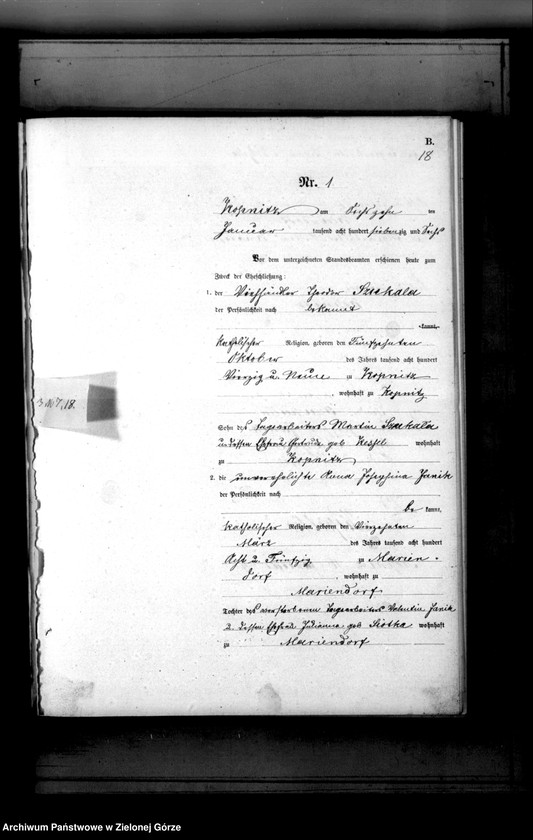 B.
18
Nr. 1
Kopnitz am Sechszehn ten
Januar tausend acht hundert siebenzig und Sechs
Vor dem unterzeichneten Standesbeamten erschienen heute zum
Zweck der Eheschließung:
1. der Theodor Szukala
der Persönlichkeit nach bekannt
kannt,
katholischer Religion, geboren den Fünfzehnten
Oktober des Jahres tausend acht hundert
Vierzig u. Neun zu Kopnitz
, wohnhaft zu Kopnitz
Sohn des Martin Szukala
u. dessen Ehefrau Gertrude geb. wohnhaft
zu Kopnitz
2. die unverehelichte Anna Josephina Janik
der Persönlichkeit nach
be kannt,
katholischer Religion, geboren den Vierzehnten
März des Jahres tausend acht hundert
Acht u. Fünfzig zu Marien-
dorf , wohnhaft zu
Mariendorf
Tochter des verstorbenen Valentin Janik
u. dessen Ehefrau Julianna geb. wohnhaft
zu Mariendorf
Archiwum Państwowe w Zielonej Górze